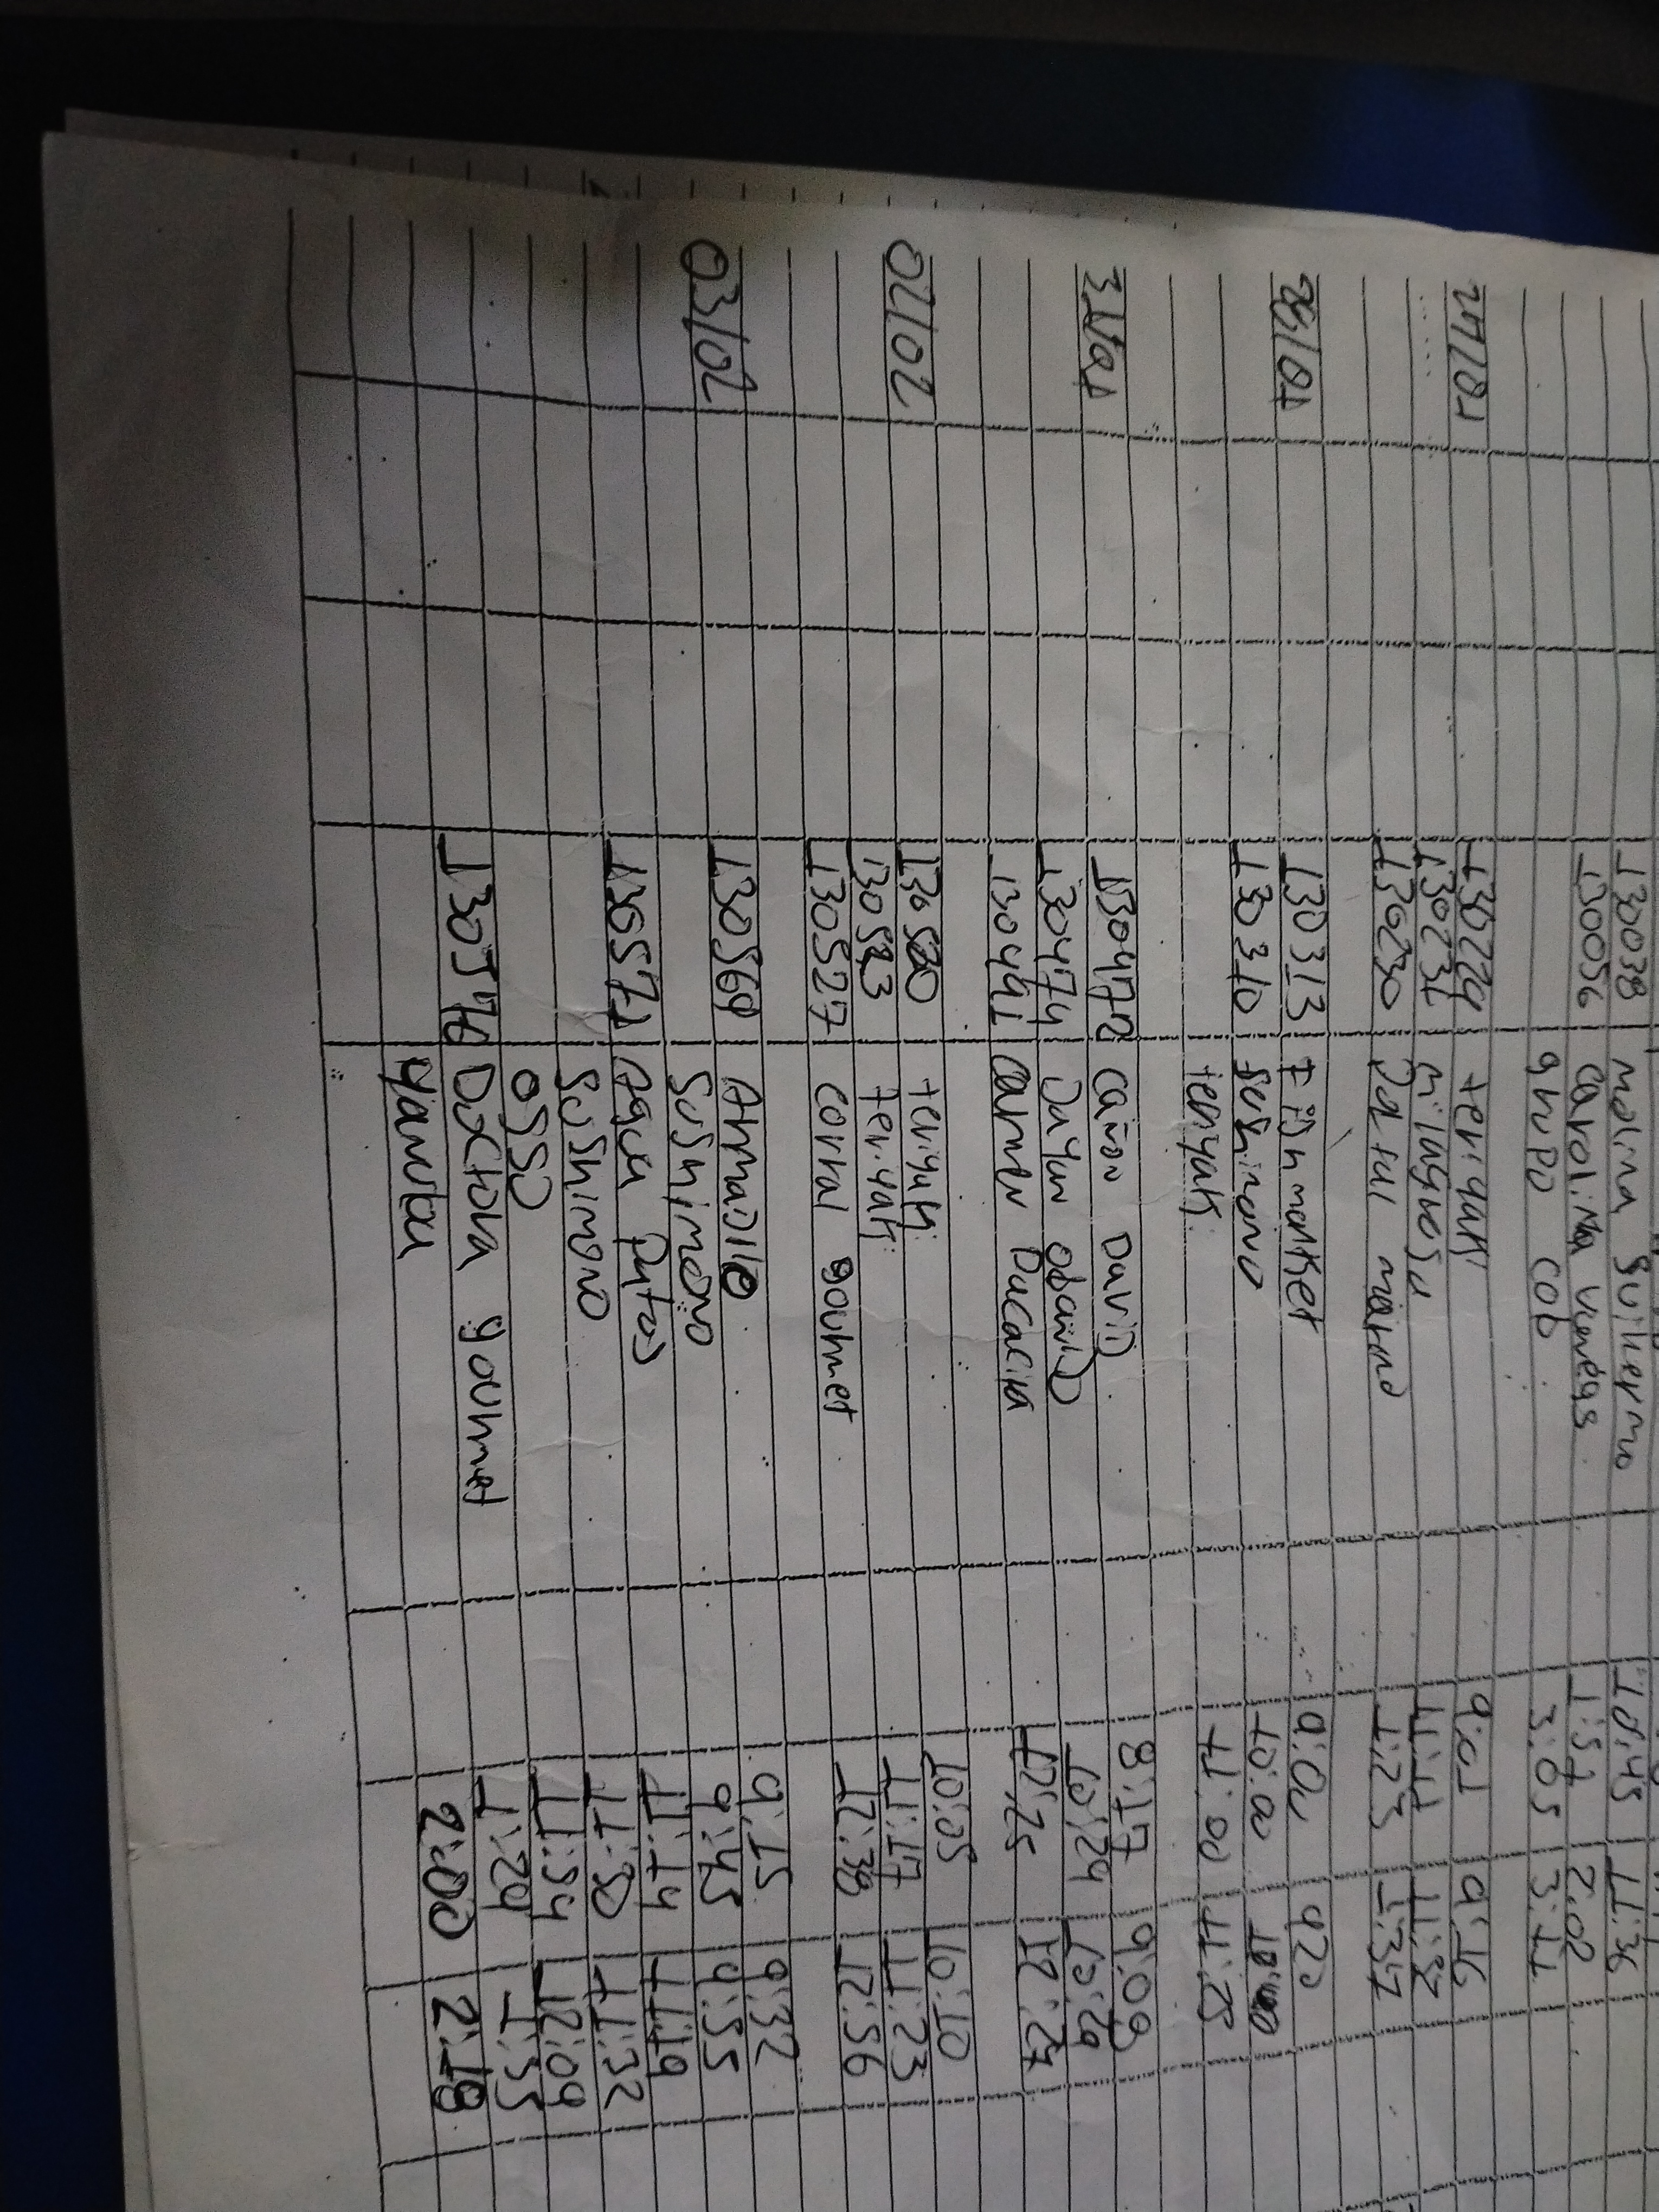 130038 molina Guillermo 10:45 11:36
130056 carolina Venegas 1:57 2:02
grupo cob 3:05 3:11
27/01 130229 teriyaki 9:01 9:16
130231 milagrosa
130230 Del tul 1:23 1:37
28/01 130313 Fish market 9:00 920
130310 Sushimono 10:00
teriyaki 11:00 11:25
31/01 130472 Cañon David 8:17 9:09
130474 Dayan obando 10:24 10:29
130491 Carmen Pacacira 12:25 12:27
02/02 130500 teriyaki 10:05 10:10
130523 teriyaki 11:17 11:23
130527 corral gourmet 12:38 12:56
03/02 130569 Armadillo 9:15 9:32
Sushimono 9:45 9:55
130571 Agua Putos 11:14 11:19
Sushimono 11:30 11:32
OSSO 11:54 12:09
130576 Dictoa gourmet 1:29 1:35
Yanuba 2:00 2:18